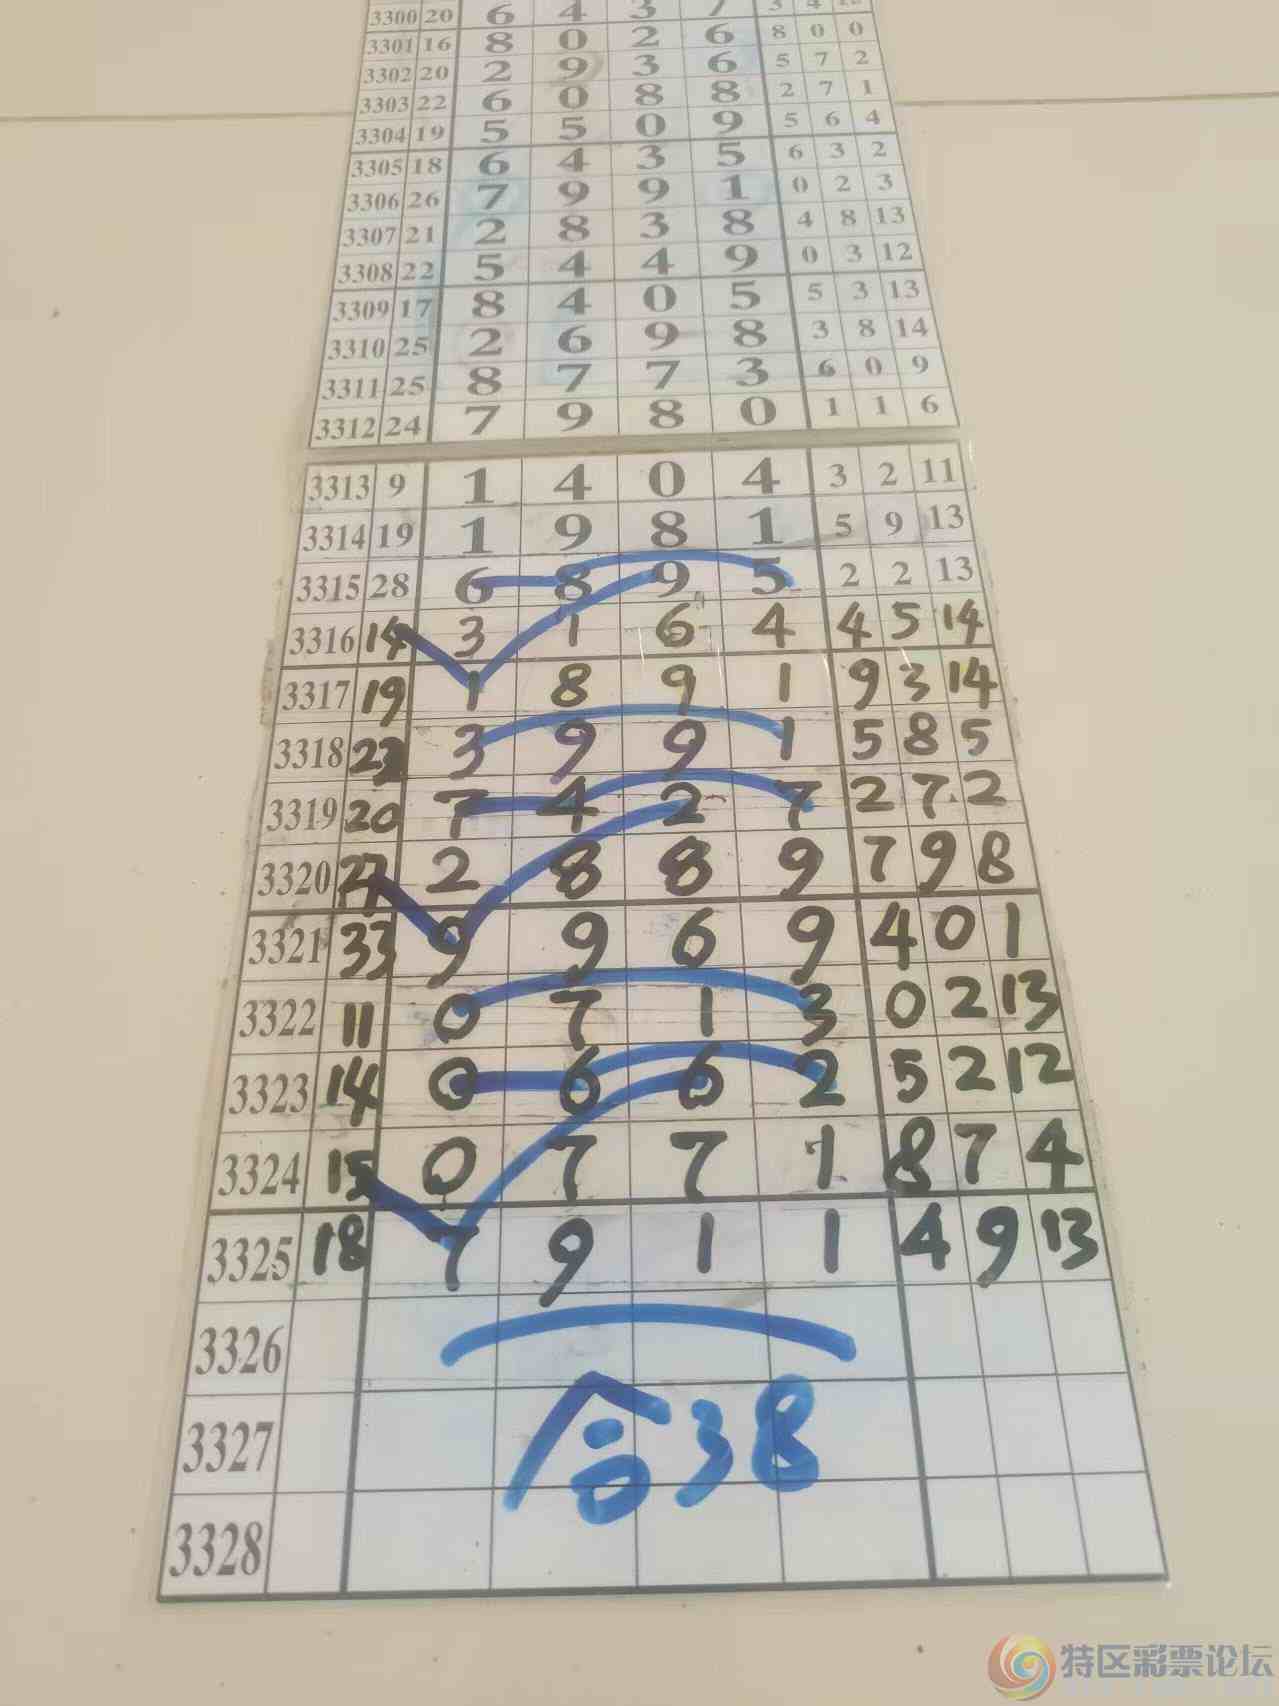 3300 20 6 4 3 7 3 4
3301 16 8 0 2 6 8 0 0
3302 20 2 9 3 6 5 7 2
3303 22 6 0 8 8 2 7 1
3304 19 5 5 0 9 5 6 4
3305 18 6 4 3 5 6 3 2
3306 26 7 9 9 1 0 2 3
3307 21 2 8 3 8 4 8 13
3308 22 5 4 4 9 0 3 12
3309 17 8 4 0 5 5 3 13
3310 25 2 6 9 8 3 8 14
3311 25 8 7 7 3 6 0 9
3312 24 7 9 8 0 1 1 6
3313 9 1 4 0 4 3 2 11
3314 19 1 9 8 1 5 9 13
3315 28 6 8 9 5 2 2 13
3316 14 3 1 6 4 4 5 14
3317 19 1 8 9 1 9 3 14
3318 3 9 9 1 5 8 5
3319 20 7 4 2 7 2 7 2
3320 27 2 8 8 9 7 9 8
3321 33 9 9 6 9 4 0 1
3322 11 0 7 1 3 0 2 13
3323 14 0 6 6 2 5 2 12
3324 15 0 7 7 1 8 7 4
3325 18 7 9 1 1 4 9 13
3326
3327
合38
3328
特区彩票论坛